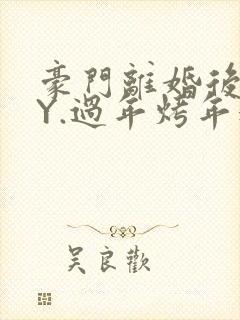 豪門離婚後
Y.過年烤年
吳良歡